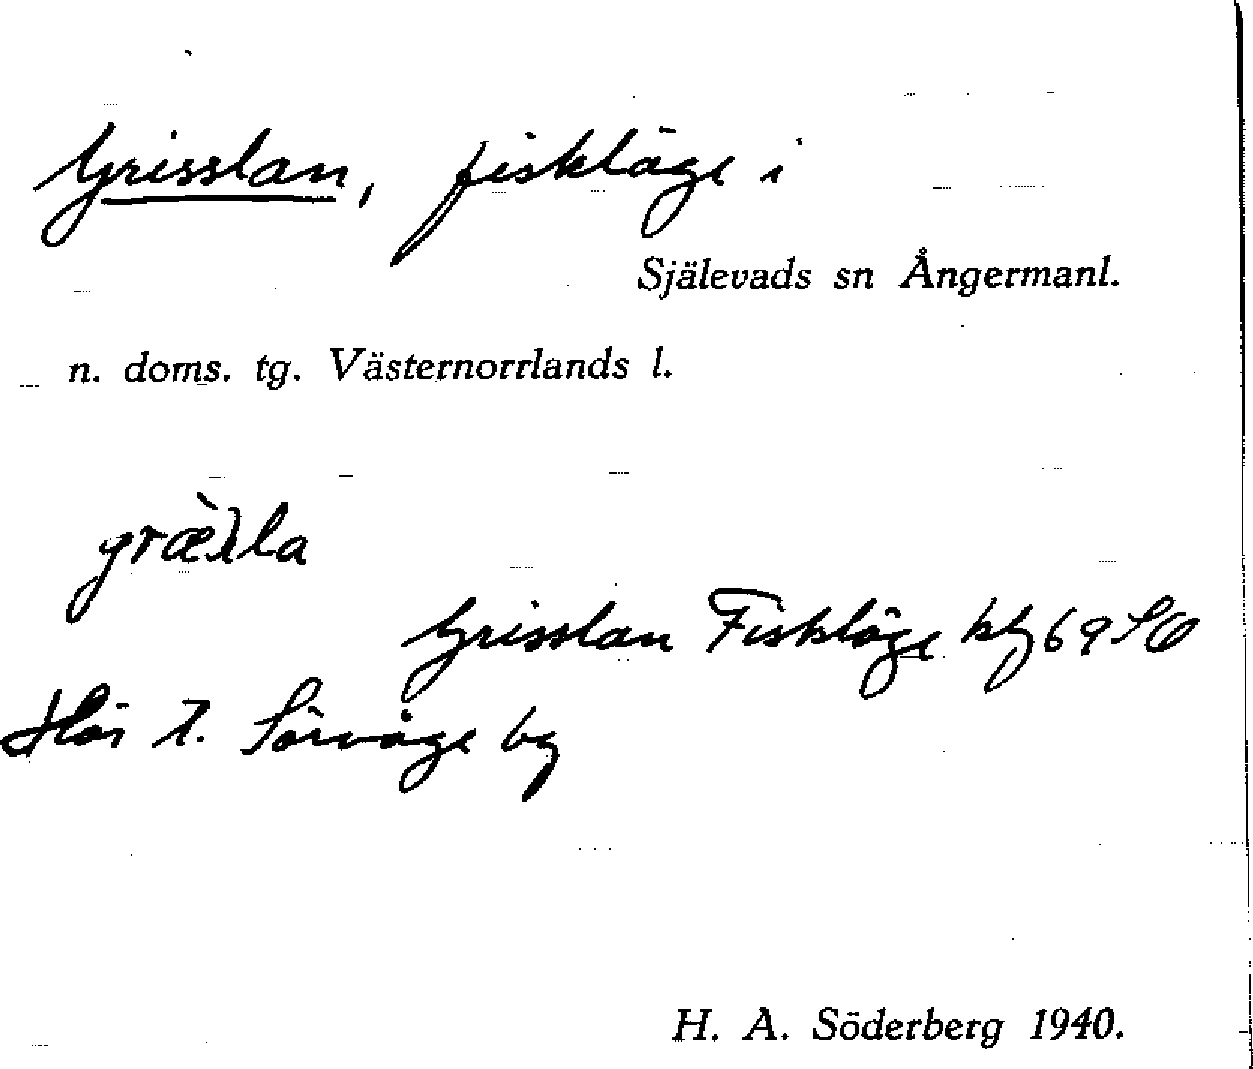 Grisslan, fiskläge i
Själevads sn Ångermanl.
n. doms. tg. Västernorrlands l.
græ̀λla
Grisslan Fiskläge kbl 69 SO
Hör t. Sörvåge by
H. A. Söderberg 1940.